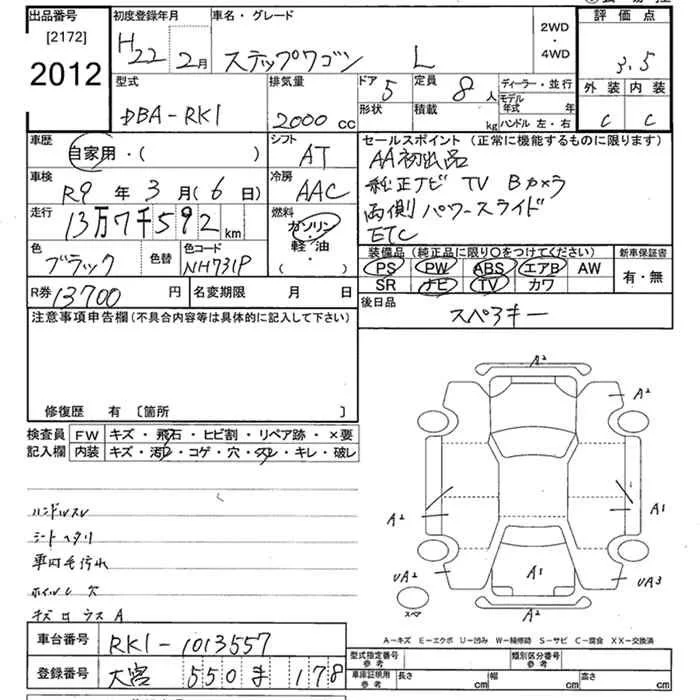 出品番号
[2172]
2012
初度登録年月
H22 2月
車名・グレード
ステップワゴン L
2WD
・
4WD
評価点
3.5
外装 内装
C C
型式
DBA-RK1
排気量
2000 cc
ドア 5
定員 8 人
形状
積載 kg
ディーラー・並行
モデル年式 年
ハンドル 左・右
車歴
自家用・( )
シフト
AT
車検
R9 年 3 月 (6 日)
冷房
AAC
走行
13万7千592 km
燃料
ガソリン
・
軽油
・
( )
色
ブラック
色替
色コード
NH731P
セールスポイント (正常に機能するものに限ります)
AA初出品
純正ナビ TV Bカメラ
両側パワースライド
ETC
装備品 (純正品に限り○をつけてください)
PS PW ABS エアB AW
SR ナビ TV カワ
新車保証書
有・無
R券 13700 円
名変期限 月 日
後日品
スペアキー
注意事項申告欄 (不具合内容等は具体的に記入して下さい)
修復歴 有 [箇所 ]
検査員記入欄
FW キズ・飛石・ヒビ割・リペア跡・×要
内装 キズ・汚レ・コゲ・穴・スレ・キレ・破レ
ハンドルスレ
シートヘタリ
車内毛汚れ
A2
A2
A2
A1
A1
UA2
UA3
A2
スペア
A-キズ E-エクボ U-凹み W-補修跡 S-サビ C-腐食 XX-交換済
車台番号
RK1-1013557
登録番号
大宮 550 ま 178
型式指定番号
参考
類別区分番号
参考
車庫証明用
参考
長さ cm
幅 cm
高さ cm